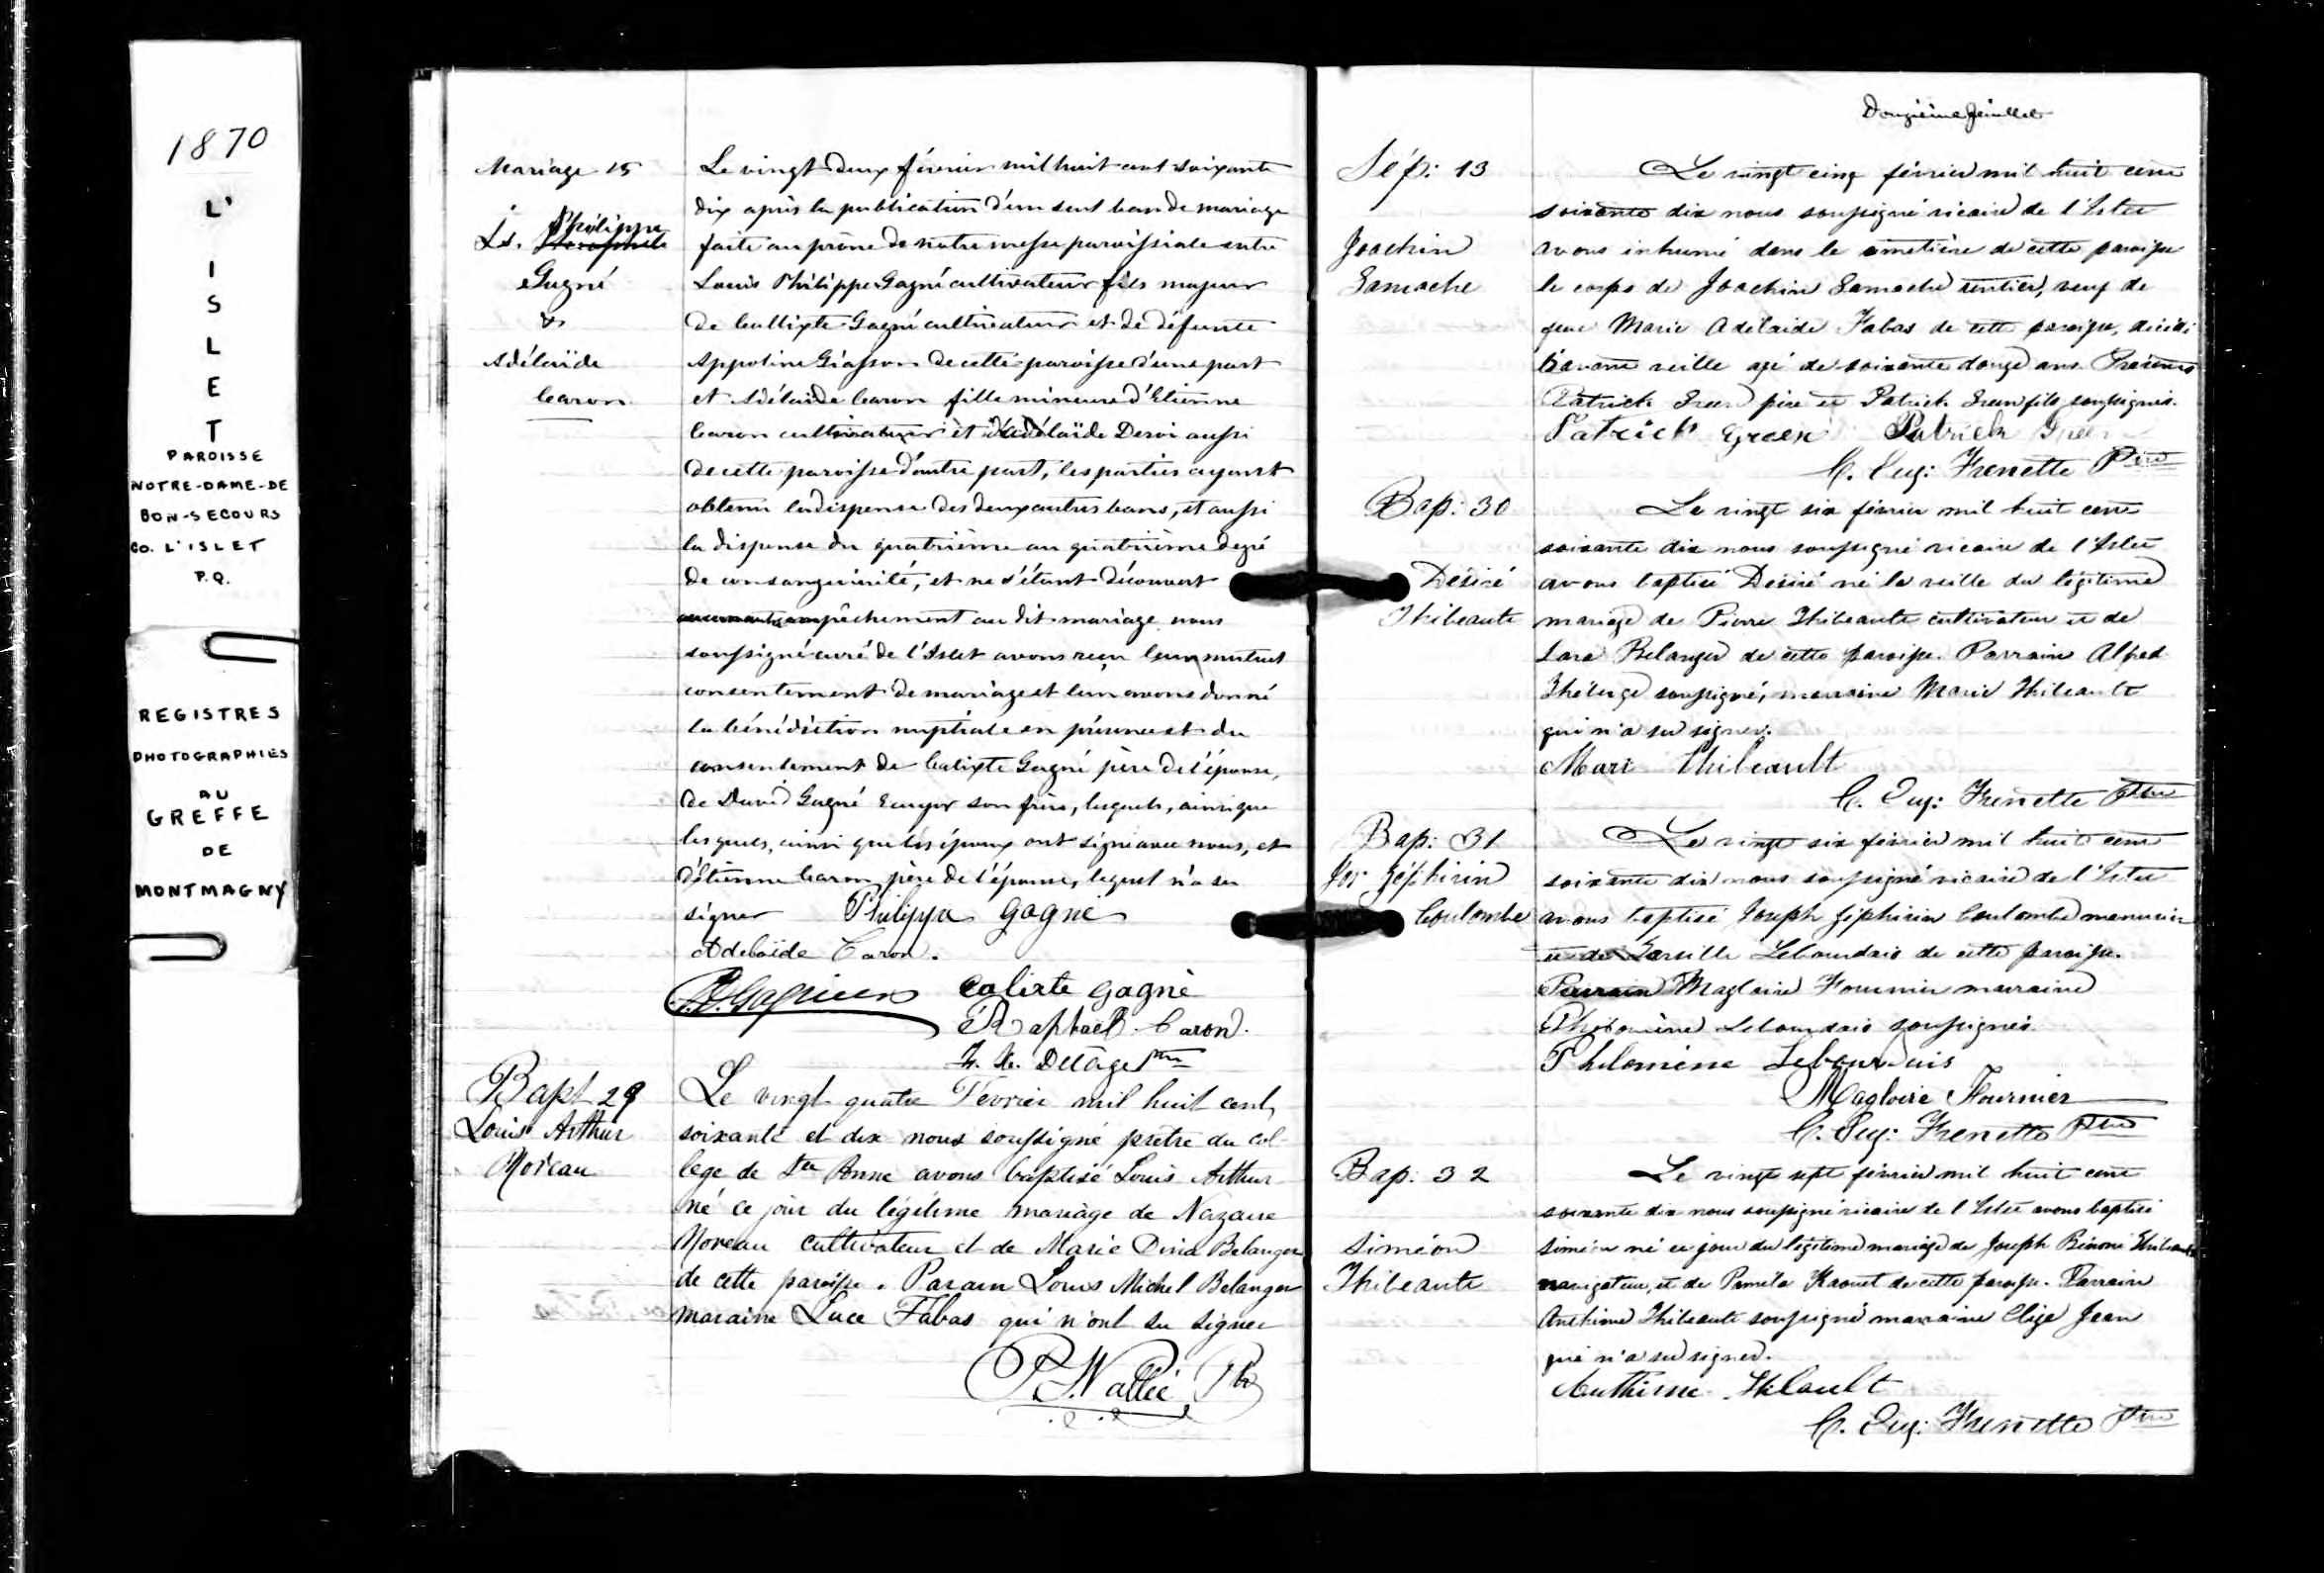 1870
L'
I
S
L
E
T
PAROISSE
NOTRE-DAME-DE
BON-SECOURS
CO. L'ISLET
P.Q.
REGISTRES
PHOTOGRAPHIES
AU
GREFFE
DE
MONTMAGNY
Mariage 15
Ls. Philippe
Gagné
&
Adélaïde
Caron
Le vingt deux février mil huit cent soixante
dix après la publication d'un seul ban de mariage
faite au prône de notre messe paroissiale entre
Louis Philippe Gagné cultivateur fils majeur
de Callixte Gagné cultivateur et de défunte
Appoline Giasson de cette paroisse d'une part
et Adélaïde Caron fille mineure d'Etienne
Caron cultivateur et d'Adélaïde Deroi aussi
de cette paroisse d'autre part, les parties ayant
obtenu la dispense des deux autres bans, et aussi
la dispense du quatrième au quatrième degré
de consanguinité, et ne s'étant découvert
empêchement au dit mariage nous
soussigné curé de l'Islet avons reçu leur mutuel
consentement de mariage et leur avons donné
la bénédiction nuptiale en présence et du
consentement de Calixte Gagné père de l'époux,
de David Gagné Ecuyer son frère, lesquels, ainsi que
lesquels, ainsi que les époux ont signé avec nous, et
d'Etienne Caron père de l'épouse, lequel n'a su
signer Philippe Gagné
Adelaïde Caron.
Calixte Gagné
Raphaël Caron.
Delâge Ptre
Bapt 29
Louis Arthur
Moreau
Le vingt quatre Fevrier mil huit cent
soixante et dix nous soussigné prêtre du col-
lege de Ste Anne avons baptisé Louis Arthur
né ce jour du légitime mariage de Nazaire
Moreau cultivateur et de Marie Dina Belanger
de cette paroisse. Parain Louis Michel Belanger
maraine Luce Fabas qui n'ont su signer
Vallée Ptr
Douzième feuillet
Sép: 13
Joachin
Gamache
Le vingt cinq février mil huit cent
soixante dix nous soussigné vicaire de l'Islet
avons inhumé dans le cimetière de cette paroisse
le corps de Joachin Gamache rentier, veuf de
feue Marie Adelaide Fabas de cette paroisse, décédé
l'avant veille agé de soixante douze ans. Présents
Patrick Green père et Patrick Green fils soussignés.
Patrick Green Patrick Green
C. Eug: Frenette Ptre
Bap: 30
Désiré
Thibeault
Le vingt six février mil huit cent
soixante dix nous soussigné vicaire de l'Islet
avons baptisé Désiré né la veille du légitime
mariage de Pierre Thibeault cultivateur et de
Belanger de cette paroisse. Parrain Alfred
Théberge soussigné, marraine Marie Thibeault
qui n'a su signer.
Mari Thibeault
C. Eug: Frenette Ptre
Bap: 31
Jos Zéphirin
Coulombe
Le vingt six février mil huit cent
soixante dix nous soussigné vicaire de l'Islet
avons baptisé Joseph Zéphirin Coulombe menuisier
et de Lebourdais de cette paroisse.
Parrain Magloire Fournier marraine
Philomène Lebourdais soussignés.
Philomène Lebourdais
Magloire Fournier
C. Eug: Frenette Ptre
Bap: 32
Siméon
Thibeault
Le vingt sept février mil huit cent
soixante dix nous soussigné vicaire de l'Islet avons baptisé
Siméon né ce jour du légitime mariage de Joseph Bénoni Thibeault
navigateur, et de Paméla Kaouet de cette paroisse. Parrain
Anthime Thibeault soussigné marraine Elize Jean
qui n'a su signer.
Anthime
C. Eug: Frenette Ptre